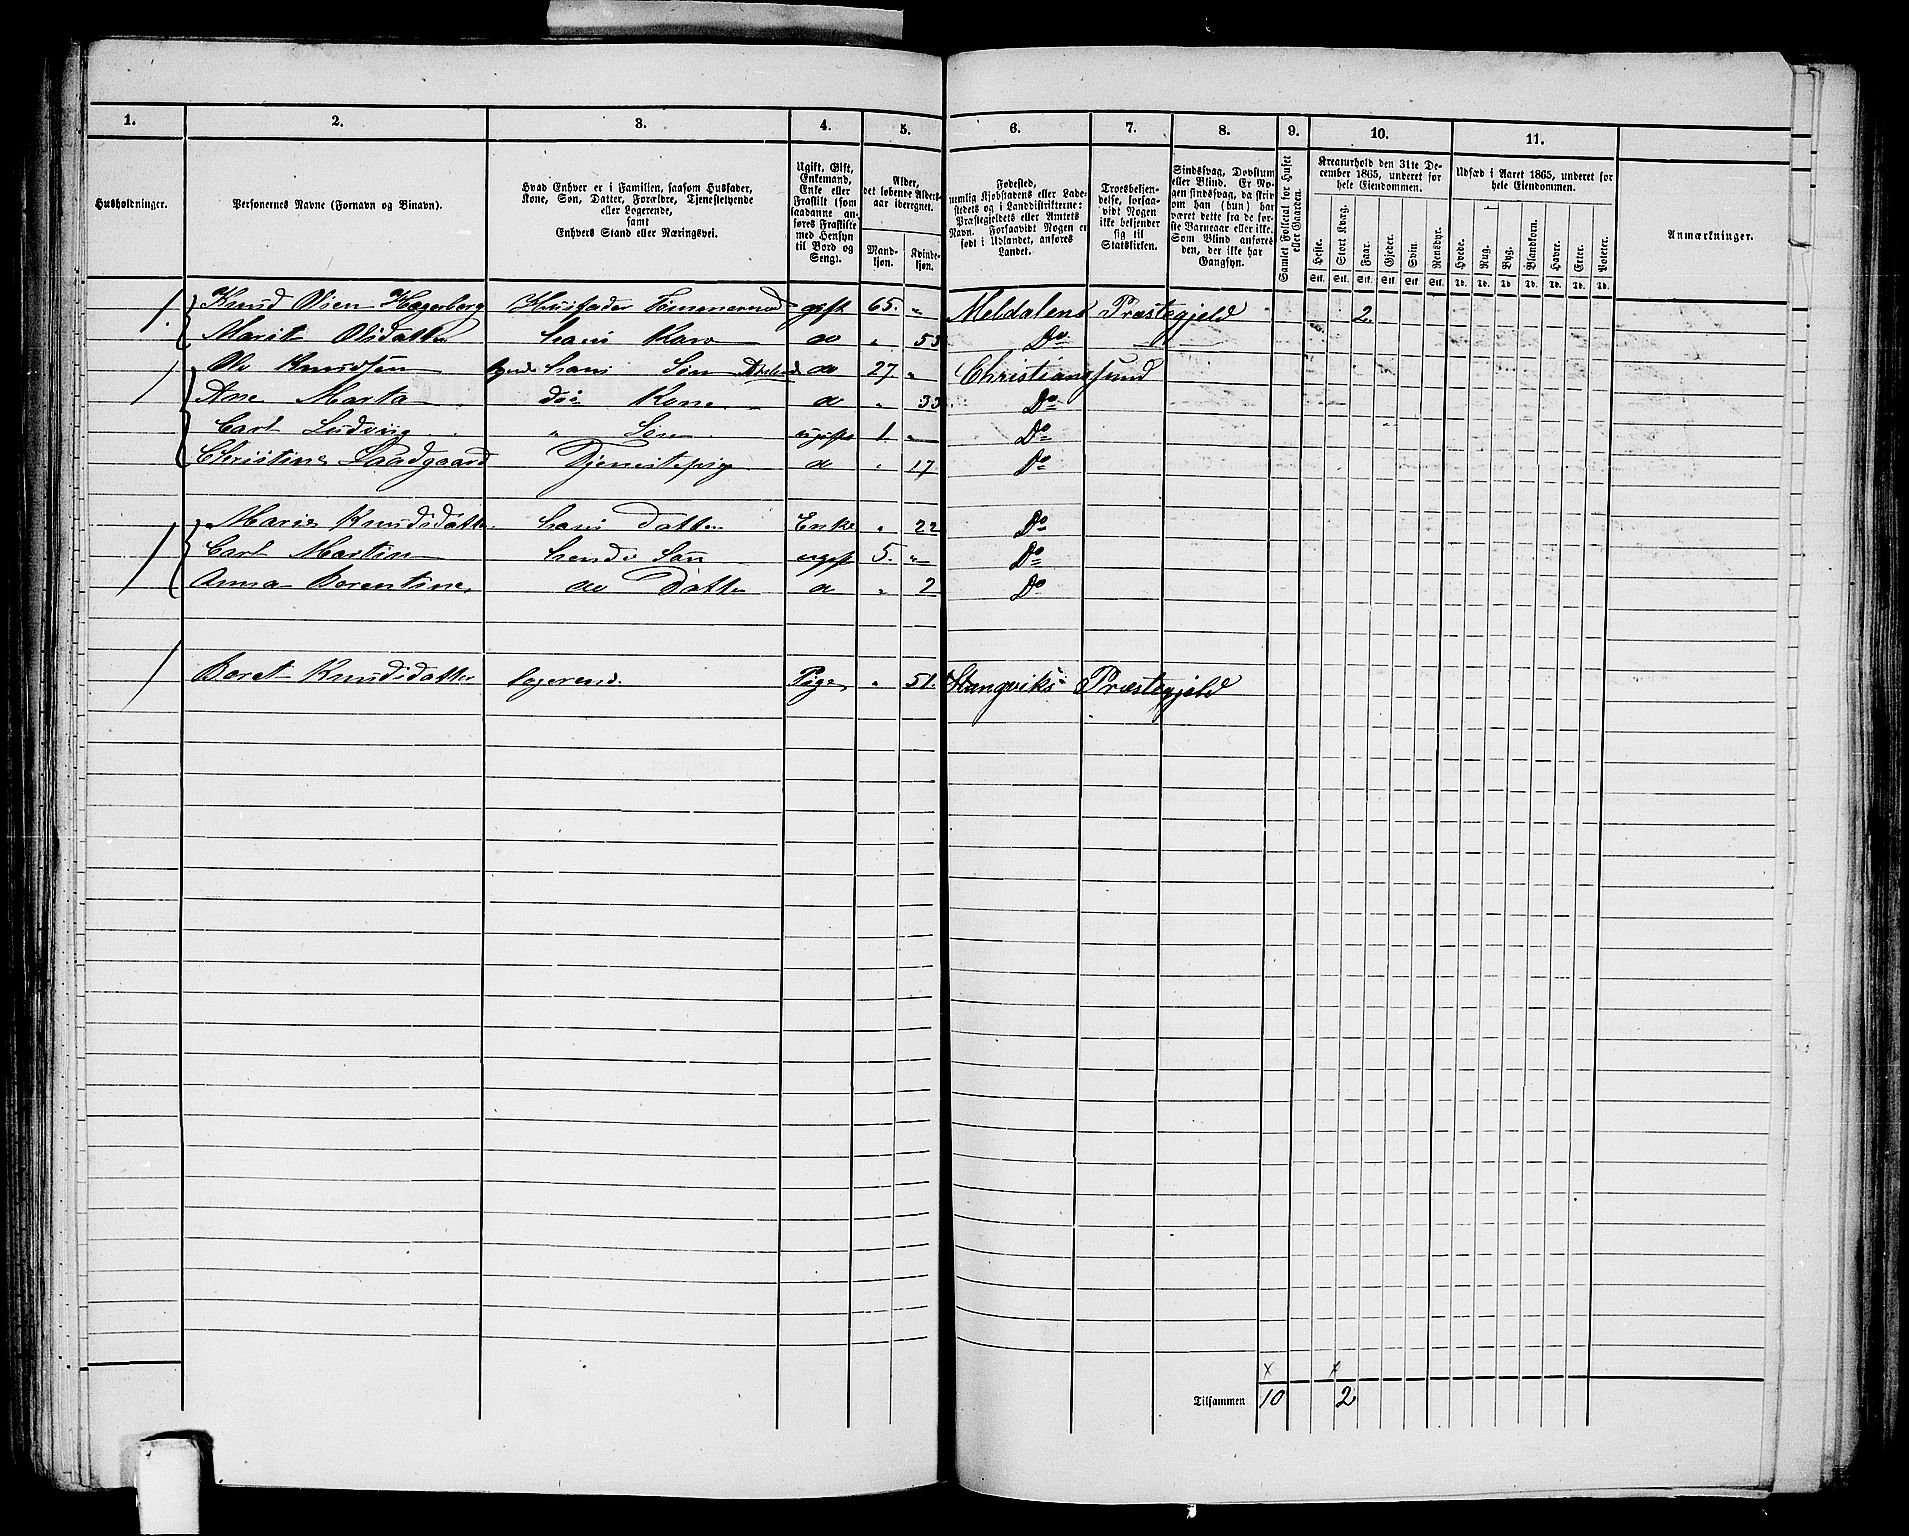 1. 2. 3. 4. 5. 6. 7. 8. 9. 10. 11.
Husholdninger.
Personernes Navne (Fornavn og Binavn).
Hvad Enhver er i Familien, saasom Husfader,
Kone, Søn, Datter, Forældre, Tjenestetyende
eller Logerende,
samt
Enhvers Stand eller Næringsvei.
Ugift, Gift,
Enkemand,
Enke eller
Fraskilt (som
saadanne an-
føres Fraskilte
med Hensyn
til Bord og
Seng).
Alder,
det løbende Alders-
aar iberegnet.
Mand-
kjøn.
Kvinde-
kjøn.
Fødested,
nemlig Kjøbstadens eller Lade-
stedets og i Landdistrikterne:
Præstegjeldets eller Amtets
Navn. Forsaavidt Nogen er
født i Udlandet, anføres
Landet.
Troesbekjen-
delse, forsaa-
vidt Nogen
ikke bekjender
sig til
Statskirken.
Sindssvag, Døvstum
eller Blind. Er No-
gen sindssvag, da skriv
om han (hun) har
været dette fra de før-
ste Barneaar eller ikke.
Som Blind anføres
den, der ikke har
Gangsyn.
Samlet Folketal for Huset
eller Gaarden.
Kreaturhold den 31te De-
cember 1865, underet for
hele Eiendommen.
Heste.
Stort Kvæg.
Faar.
Gjeder.
Svin.
Rensdyr.
Stk. Stk. Stk. Stk. Stk. Stk.
Udsæd i Aaret 1865, underet for
hele Eiendommen.
Hvede.
Rug.
Byg.
Blandkorn.
Havre.
Erter.
Poteter.
Td. Td. Td. Td. Td. Td. Td.
Anmærkninger.
Knud Olsen Hagerberg Huusfader gift 65. „ Meldalens Præstegjeld 2
Marit Olsdatter hans Kone do „ 53 Do
Ole Knudsen hans Søn do 27 „ Christianssund
Ane Marta ds: Kone do „ 33 Do
Carl Ludvig „ Søn ugift 1 „ Do
Christine Saadgaard Tjenestepige do „ 17 Do
Marie Knudsdatter hans Datter Enke „ 22 Do
Carl Martin hendes Søn ugift 5. „ Do
Anna Berentine do Datter do „ 2 Do
Beret Knudsdatter logerende Pige „ 51. Stangviks Præstegjeld
Tilsammen 10 2